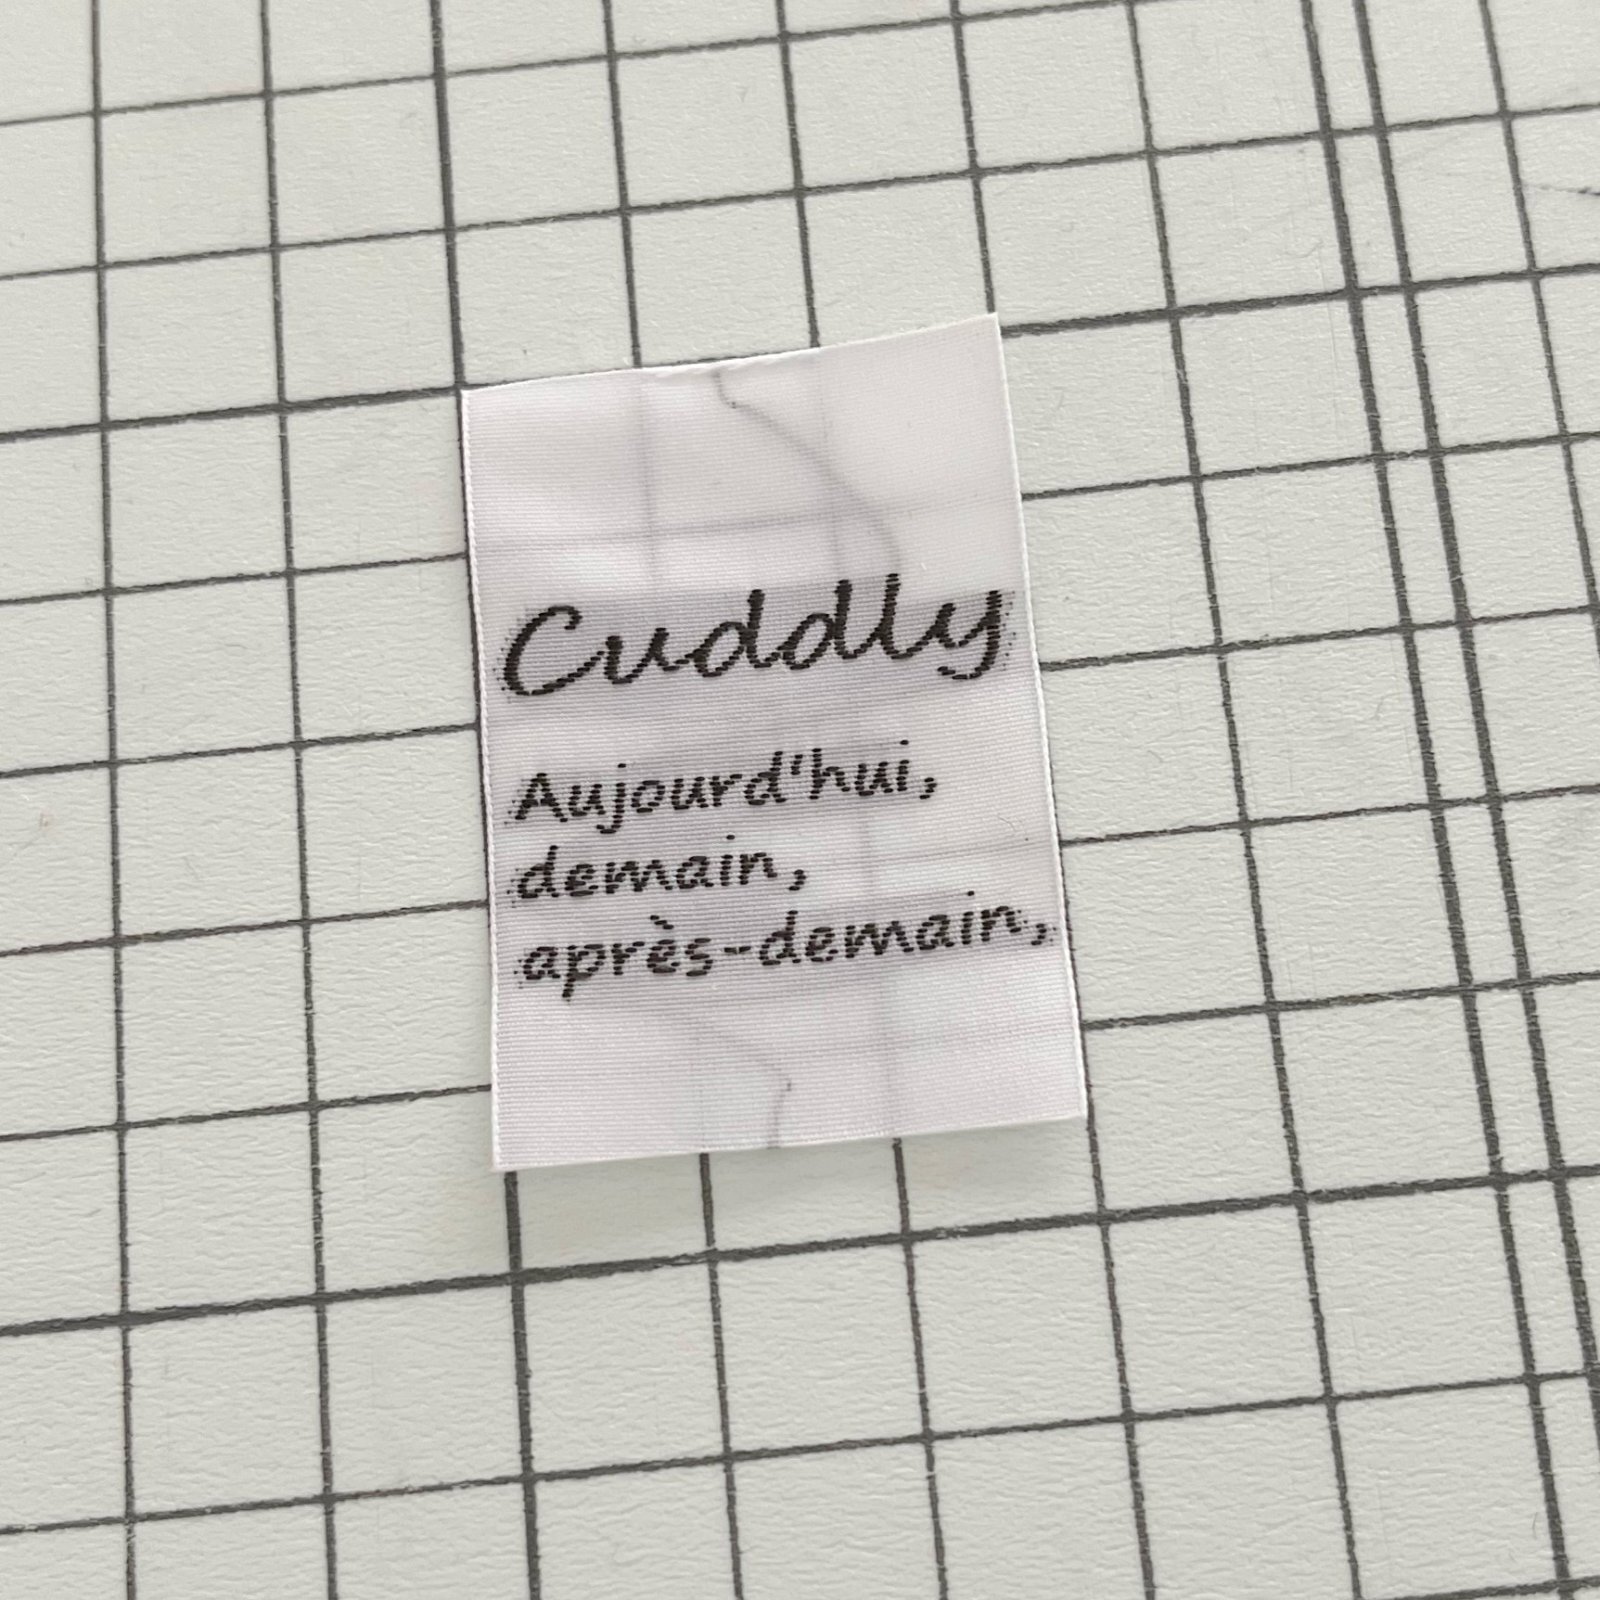 Cuddly
Aujourd'hui,
demain,
après-demain,